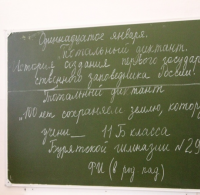 Одиннадцатое января.
Тотальный диктант.
История создания первого государ
ственного заповедника России.
Тотальный диктант
"100 лет сохраняем землю, котор
учени__ 11 Б класса
Бурятской гимназии №29
ФИ (в род. пад)